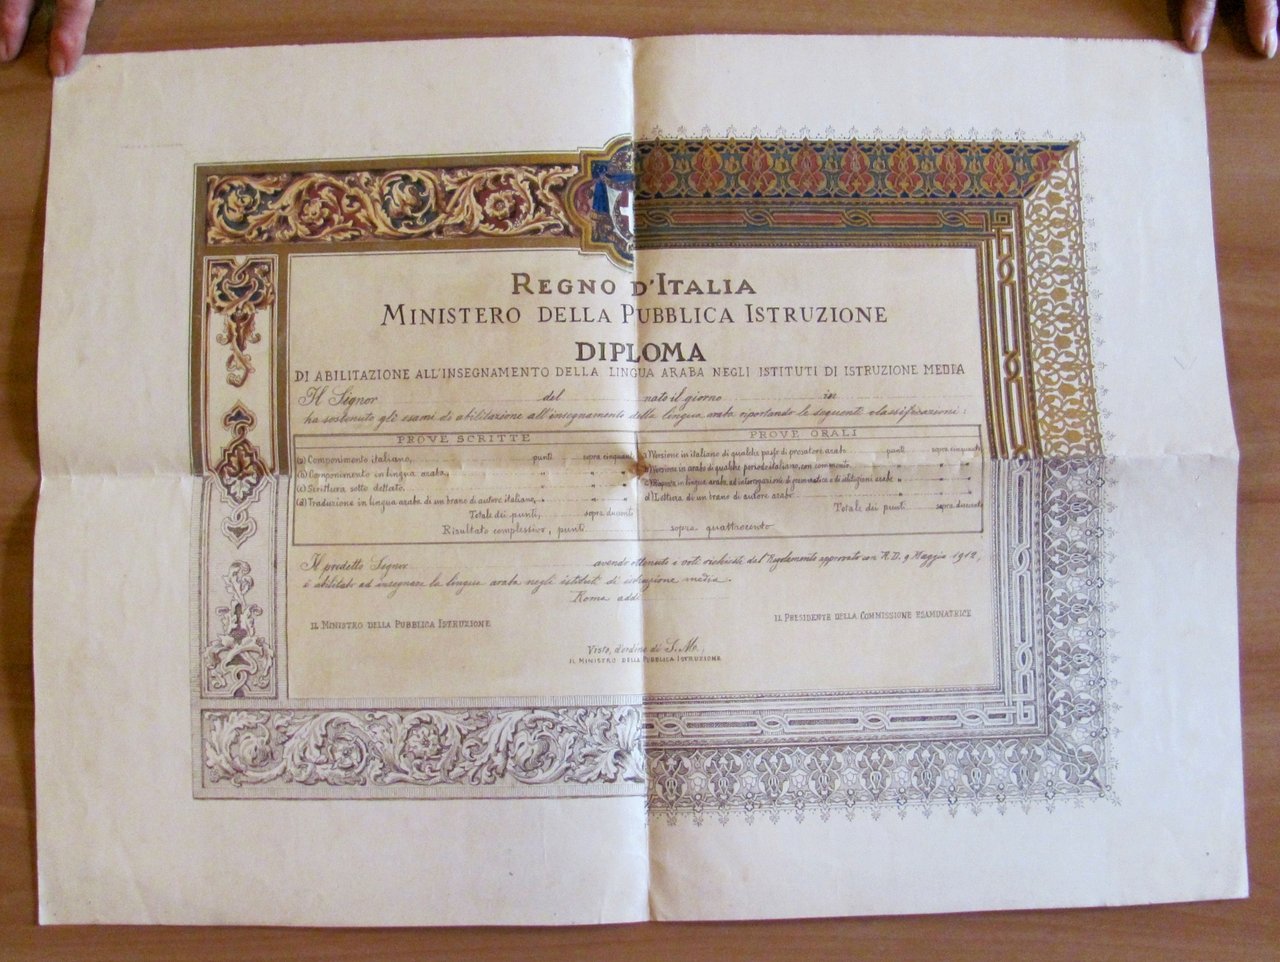 REGNO D'ITALIA
MINISTERO DELLA PUBBLICA ISTRUZIONE
DIPLOMA
DI ABILITAZIONE ALL'INSEGNAMENTO DELLA LINGUA ARABA NEGLI ISTITUTI DI ISTRUZIONE MEDIA
Il Signor del nato il giorno in
ha sostenuto gli esami di abilitazione all'insegnamento della lingua araba riportando le seguenti classificazioni:
PROVE SCRITTE
(a) Componimento italiano, punti sopra cinquanta
(b) Componimento in lingua araba, " " "
(c) Scrittura sotto dettato, " " "
(d) Traduzione in lingua araba di un brano di autore italiano, " " "
Totale dei punti, sopra duecento
PROVE ORALI
a) Versione in italiano di qualche passo di prosatore arabo punti sopra cinquanta
b) Versione in arabo di qualche periodo italiano, con commento " " "
c) Risposta in lingua araba ad interrogazioni di grammatica e di istituzioni arabe " " "
d) Lettura di un brano di autore arabo " " "
Totale dei punti sopra duecento
Risultato complessivo, punti sopra quattrocento
Il predetto Signor avendo ottenuto i voti richiesti dal Regolamento approvato con R.D. 9 Maggio 1912,
è abilitato ad insegnare la lingua araba negli istituti di istruzione media.
Roma addì
IL MINISTRO DELLA PUBBLICA ISTRUZIONE
IL PRESIDENTE DELLA COMMISSIONE ESAMINATRICE
Visto, d'ordine di S. M.,
IL MINISTRO DELLA PUBBLICA ISTRUZIONE